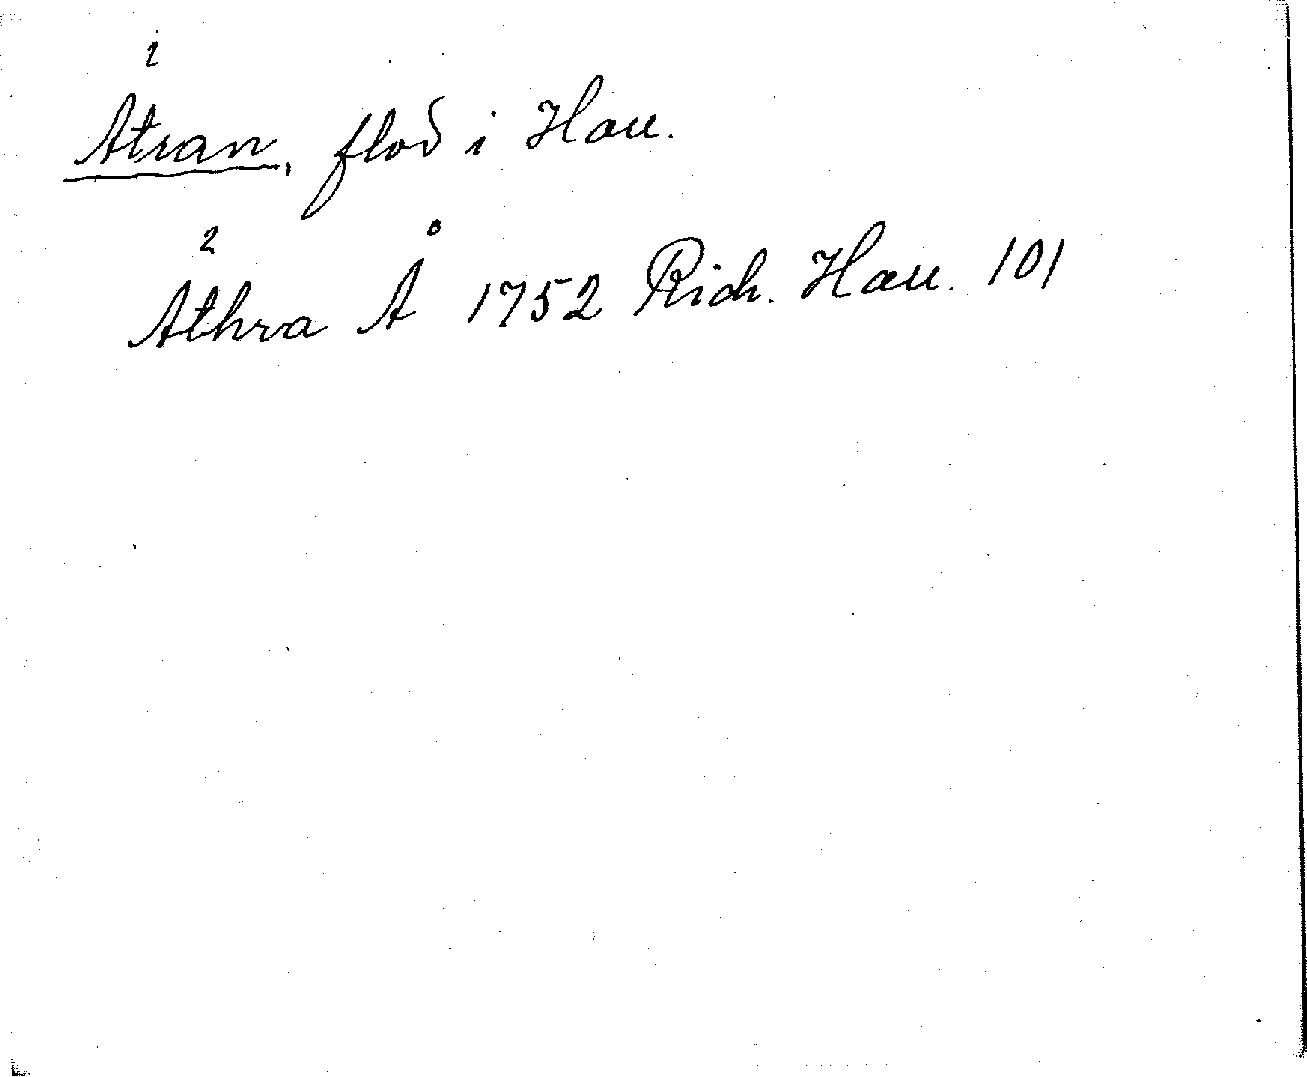 Ätran, flod i Hall.
Äthra Å 1752 Rich. Hall. 101